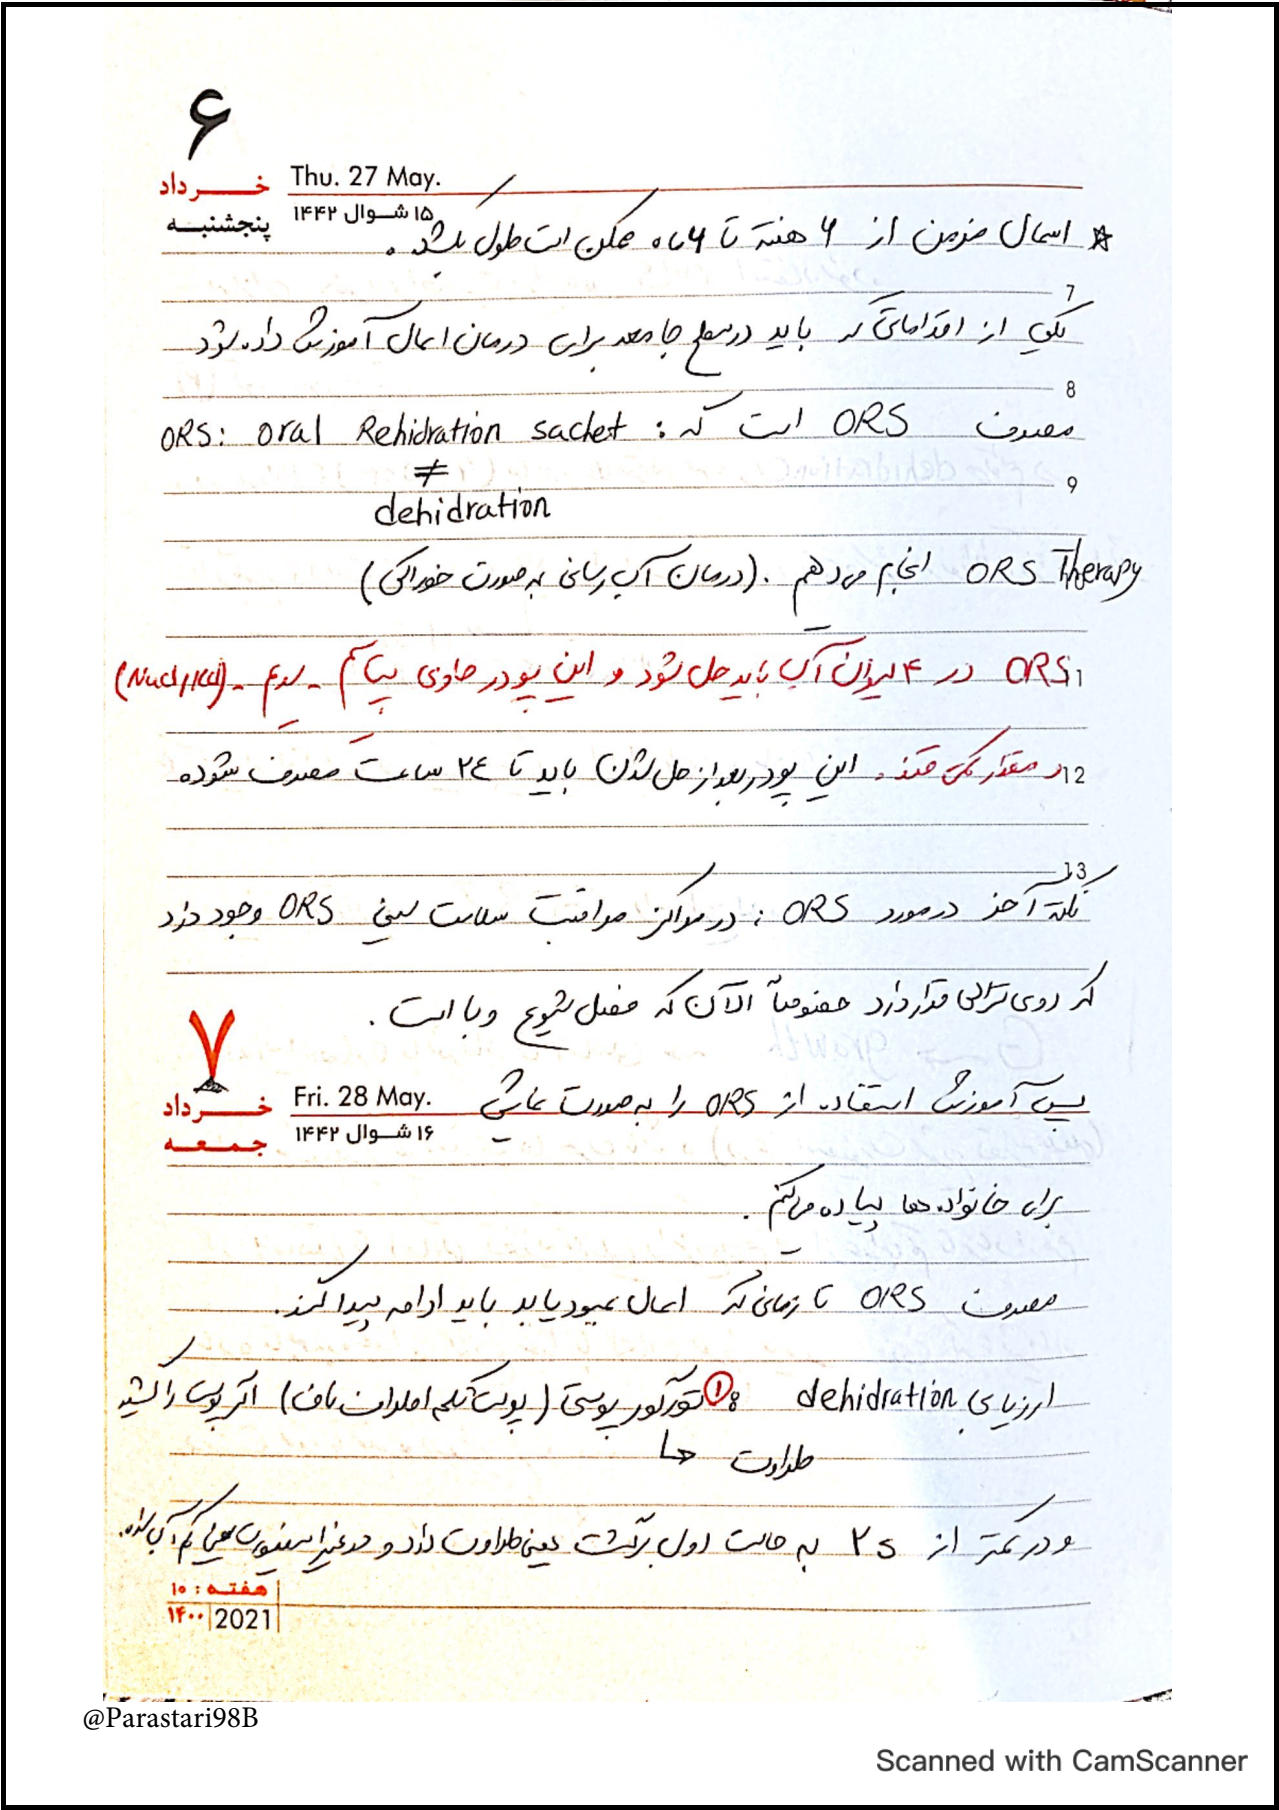 ۶
خرداد
پنجشنبه
Thu. 27 May.
۱۵ شوال ۱۴۴۲
☆ اسهال مزمن از ۶ هفته تا ۶ ماه ممکن است طول بکشد.
7
یکی از اقداماتی که باید در سطح جامعه برای درمان اسهال آموزش داده شود
8
مصرف ORS است که : ORS: oral Rehidration sachet
≠
9
dehidration
ORS Therapy انجام می‌دهیم. (درمان آب رسانی به صورت خوراکی)
ORS در ۴ لیوان آب باید حل شود و این پودر حاوی پتاسیم - سدیم - (Nacl, kcl)
12
و مقدار کمی قند. این پودر بعد از حل شدن باید تا ۲۴ ساعت مصرف شود.
13
نکته آخر در مورد ORS : در مراکز مراقبت سلامت سینی ORS وجود دارد
که روی ترالی قرار دارد خصوصاً الآن که فصل شیوع وبا است.
۷
خرداد
جمعه
Fri. 28 May.
۱۶ شوال ۱۴۴۲
پس آموزش استفاده از ORS را به صورت نمایشی
برای خانواده ها پیاده می‌کنیم.
مصرف ORS تا زمانی که اسهال بهبود یابد باید ادامه پیدا کند.
ارزیابی dehidration : ① تورگور پوستی (پوست شکم اطراف ناف) اگر پوست را کشید
طراوت
و در کمتر از ۲s به حالت اول برگشت یعنی طراوت دارد و در غیر اینصورت یعنی کم آب شده.
هفته : ۱۰
۱۴۰۰ | 2021
@Parastari98B
Scanned with CamScanner